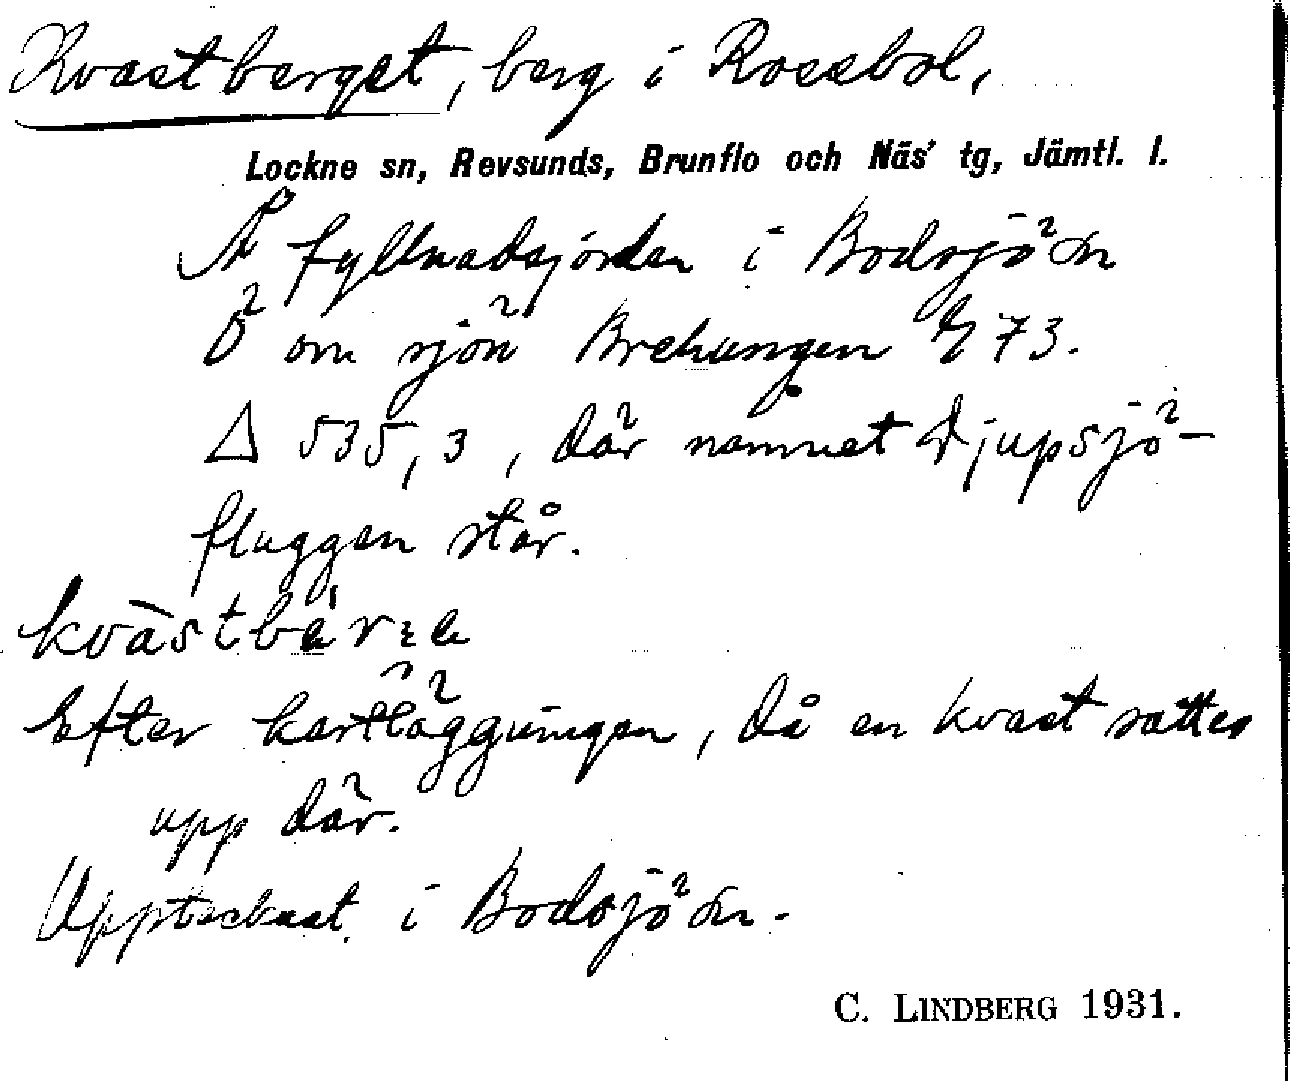 Kvastberget, berg i Rossbol,
Lockne sn, Revsunds, Brunflo och Näs' tg, Jämtl. l.
Å fyllnadsjorden i Bodsjö sn
Ö om sjön Brehungen E 73.
△ 535,3, där namnet Djupsjö-
fluggen står.
Efter kartläggningen, då en kvast sattes
upp där.
Upptecknat i Bodsjö sn.
C. LINDBERG 1931.